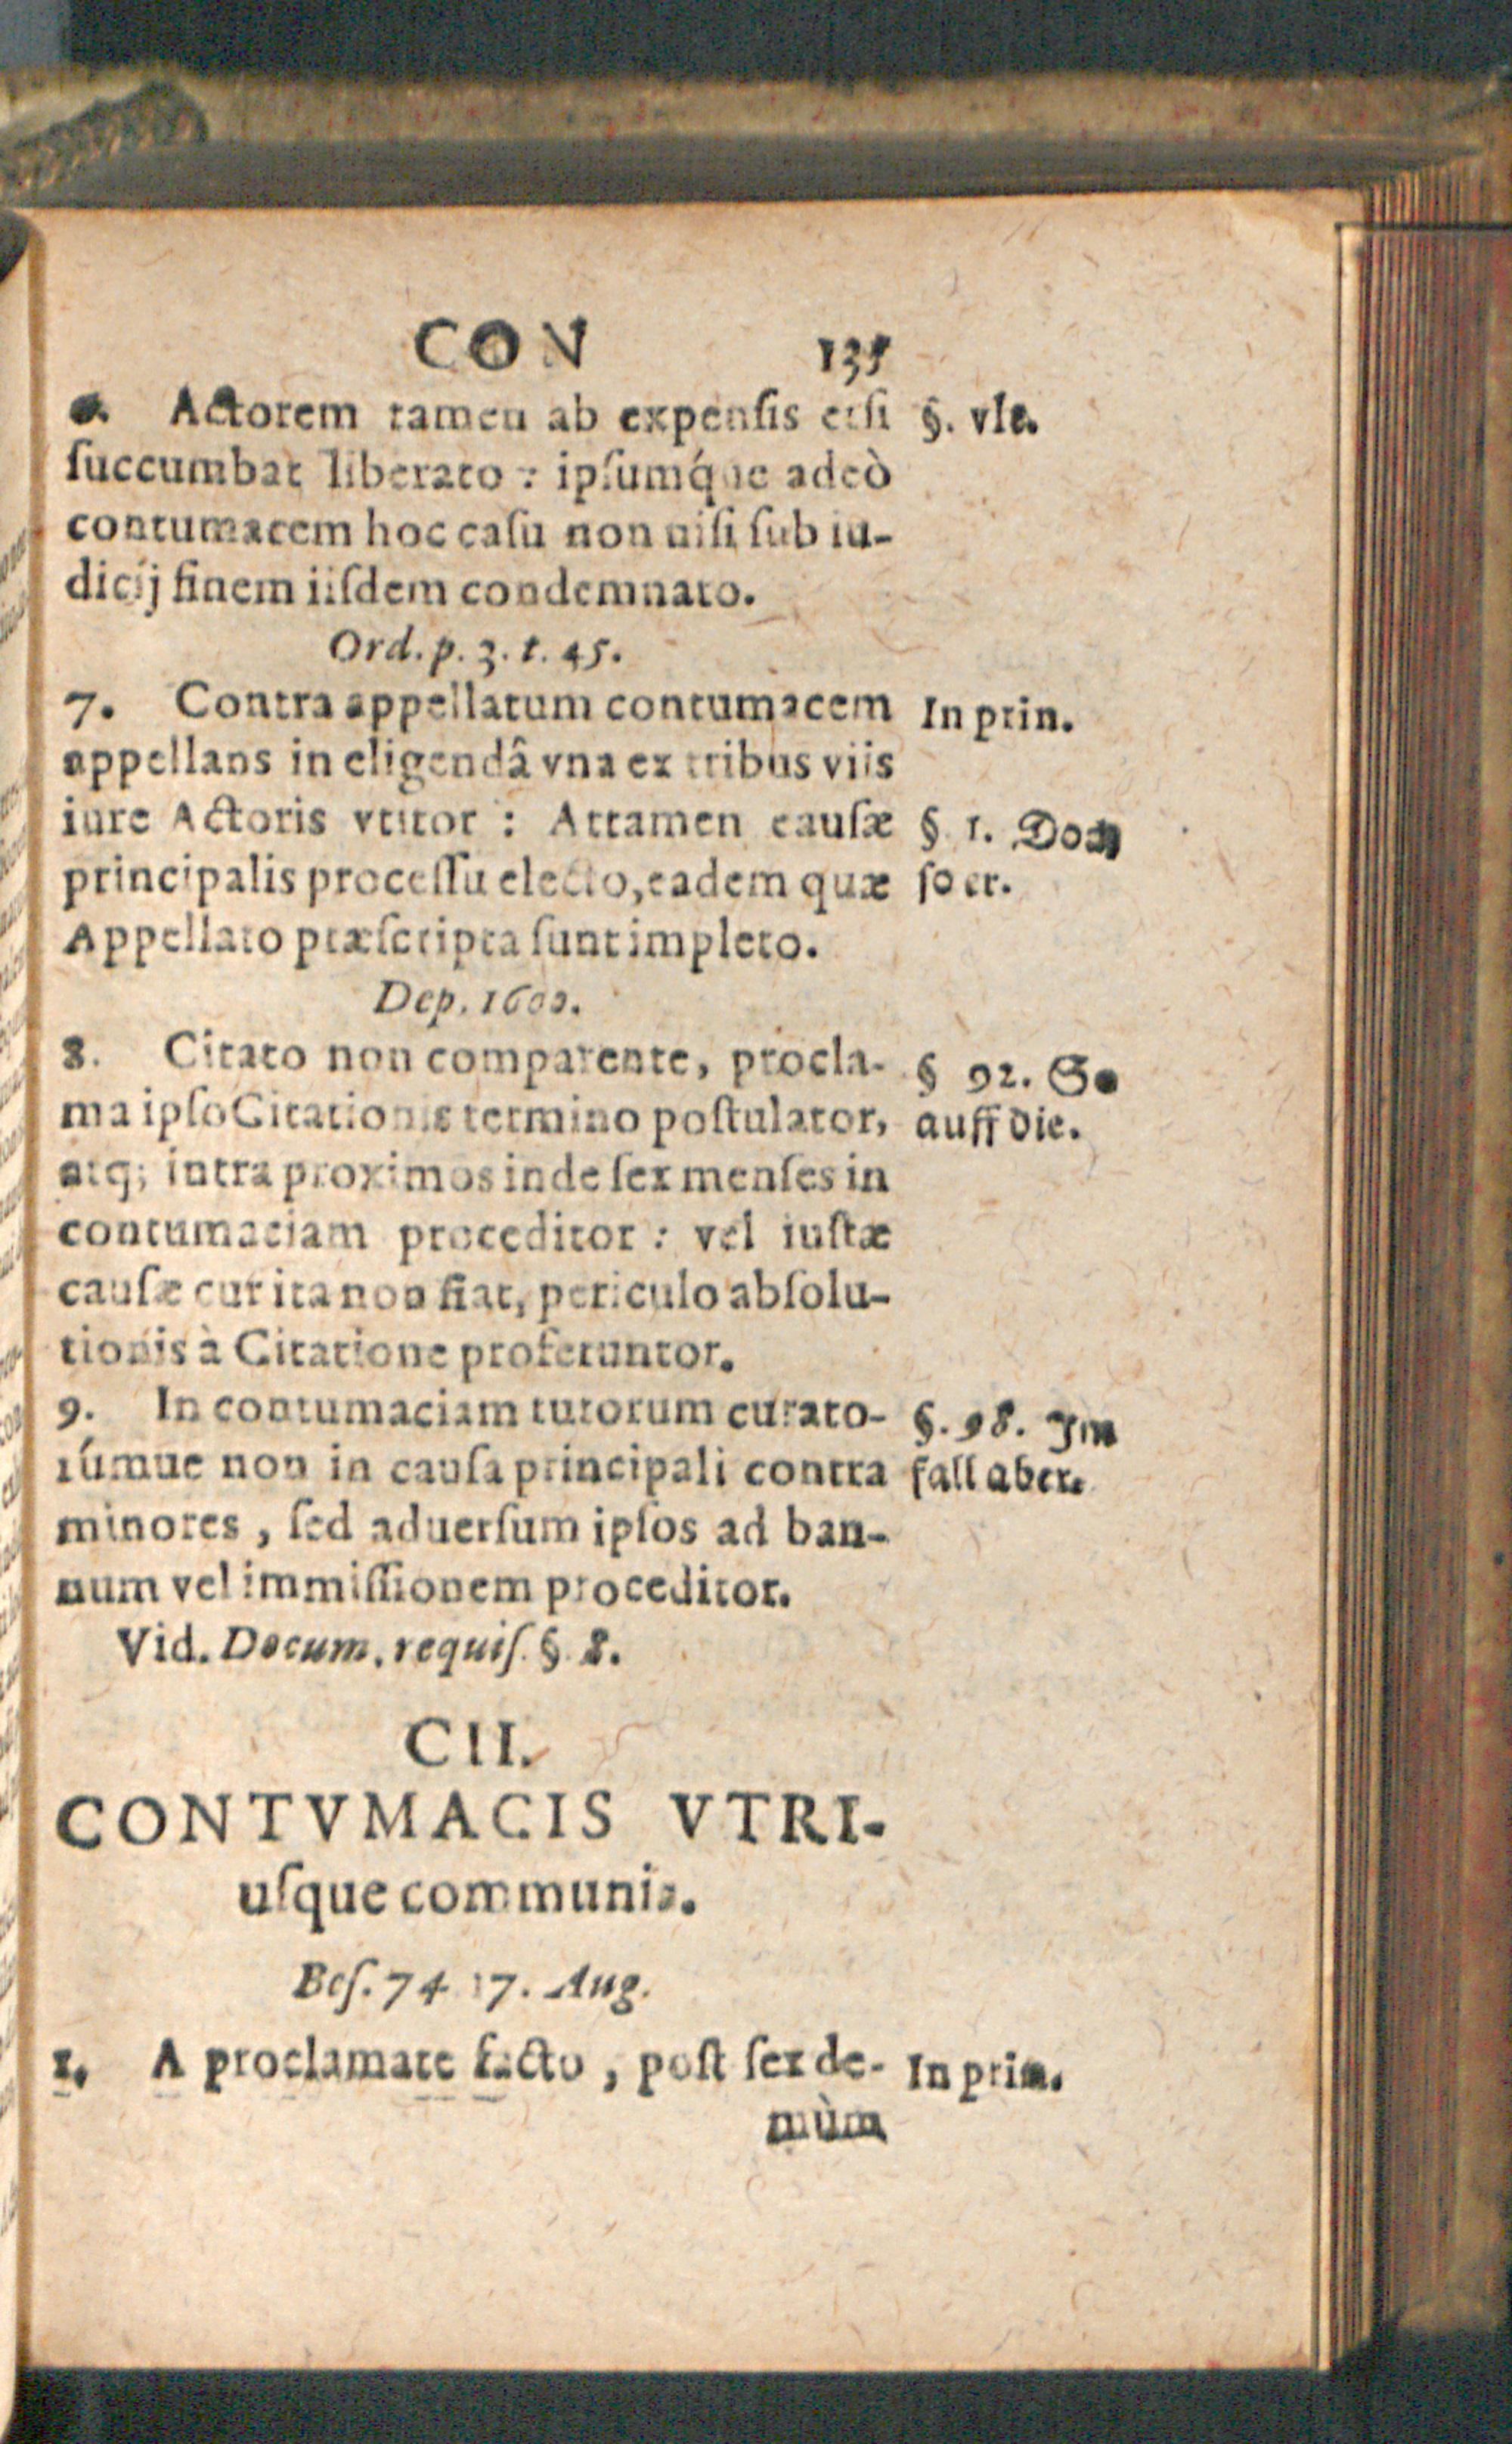 CON 135
6. Actorem tamen ab expensis etsi §. vlt.
succumbat liberato : ipsumq́ue adeò
contumacem hoc casu non nisi sub iu-
dicij finem iisdem condemnato.
Ord. p. 3. t. 45.
7. Contra appellatum contumacem In prin.
appellans in eligendâ vna ex tribus viis
iure Actoris vtitor : Attamen causæ § 1. Doch
principalis processu electo, eadem quæ so er.
Appellato præscripta sunt impleto.
Dep. 1600.
8. Citato non comparente, procla- § 92. So
ma ipso Citationis termino postulator, auff die.
atq; intra proximos inde sex menses in
contumaciam proceditor : vel iustæ
causæ cur ita non fiat, periculo absolu-
tionis à Citatione proferuntor.
9. In contumaciam tutorum curato- §. 98. Im
rúmue non in causa principali contra fall aber.
minores, sed aduersum ipsos ad ban-
num vel immissionem proceditor.
Vid. Docum. requis. § 8.
CII.
CONTVMACIS VTRI-
usque communia.
Bes. 74 17. Aug.
1. A proclamate facto, post sex de- In prin.
mùm